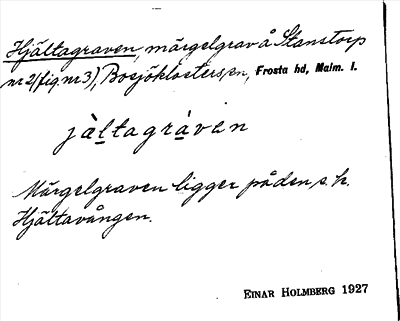 Hjältagraven, märgelgrav å Stanstorp
nr 2 (fig. nr 3), Bosjöklosters sn, Frosta hd, Malm. l.
jàl̲tagrà̲ven
Märgelgraven ligger på den s. k.
Hjältavången.
EINAR HOLMBERG 1927